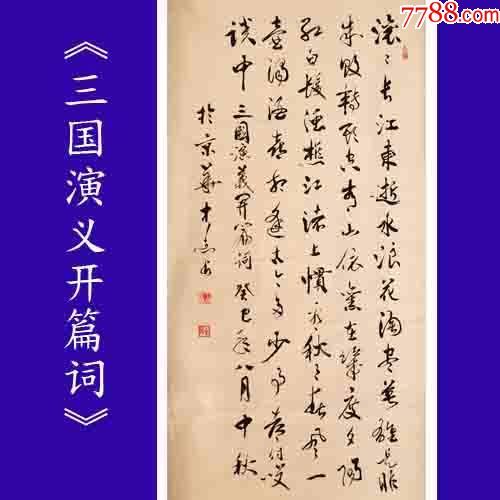 7788.com
《三国演义开篇词》
滚〻长江東逝水浪花淘尽英雄是非
成败轉头空青山依旧在几度夕陽
红白髮渔樵江渚上惯看秋月春风一
壶濁酒喜相逢古今多少事都付笑
谈中 三國演義开篇词 癸巳年八月中秋
於京華